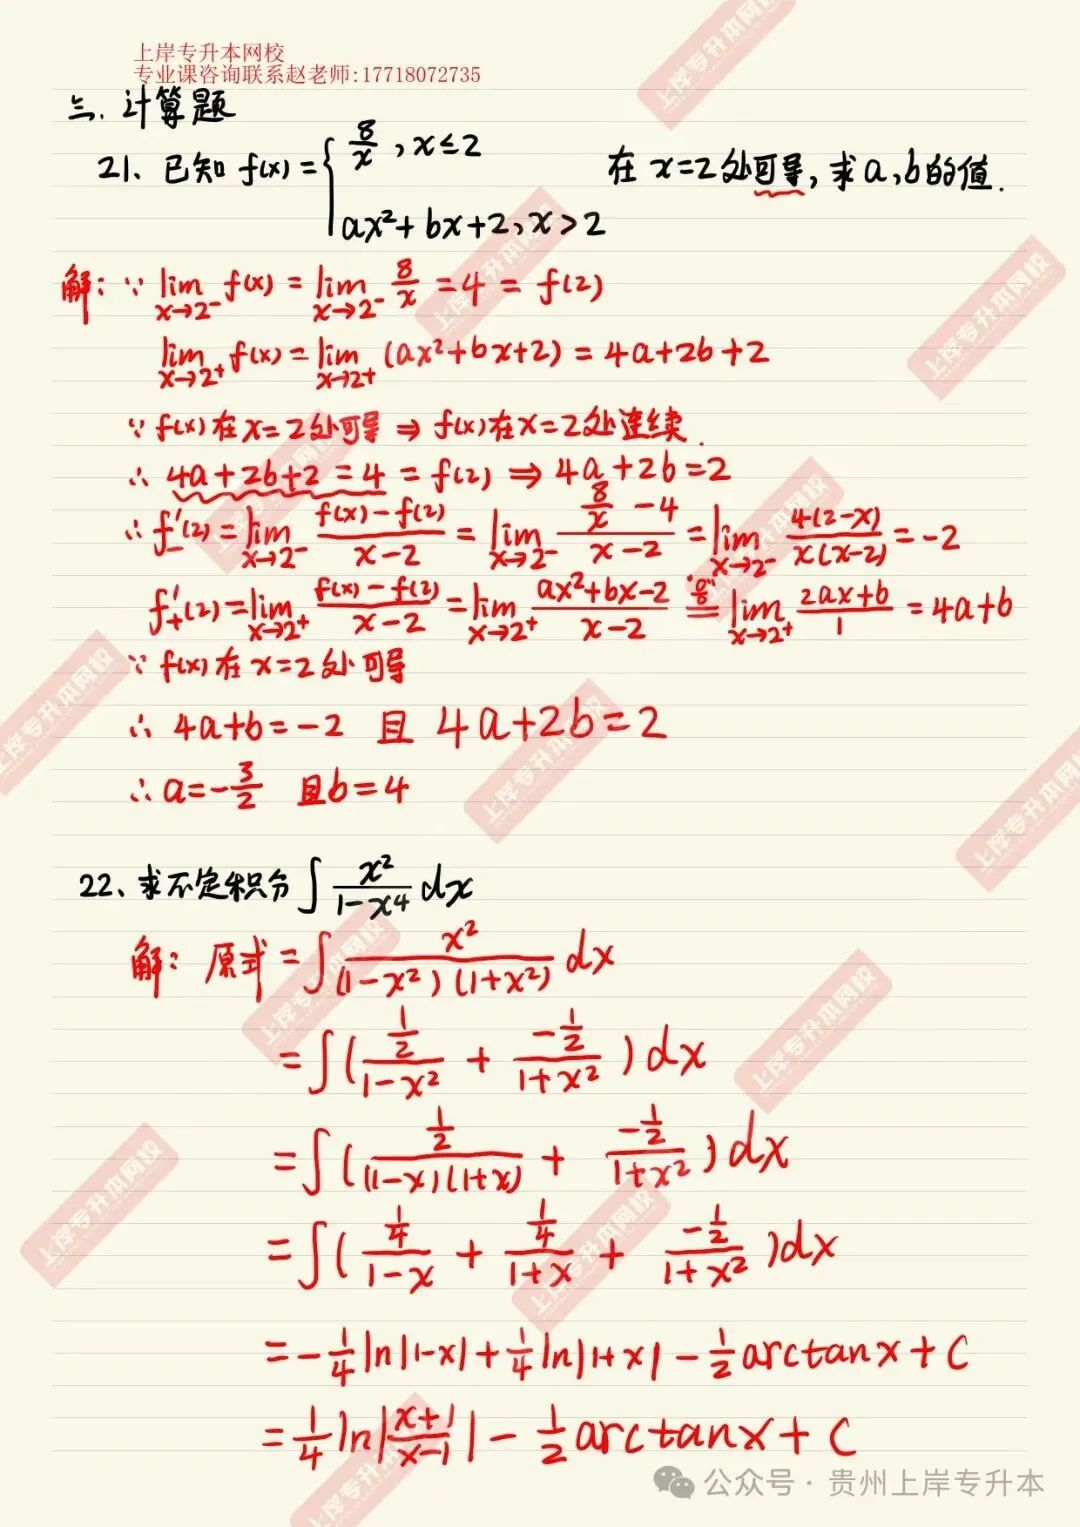 上岸专升本网校
专业课咨询联系赵老师:17718072735
三. 计算题
21、已知 f(x) = { 8/x , x≤2      在 x=2处可导, 求 a,b的值.
ax²+bx+2, x>2
解: ∵ lim x→2⁻ f(x) = lim x→2⁻ 8/x = 4 = f(2)
lim x→2⁺ f(x) = lim x→2⁺ (ax²+bx+2) = 4a+2b+2
∵ f(x)在x=2处可导 ⇒ f(x)在x=2处连续.
∴ 4a+2b+2=4 = f(2) ⇒ 4a+2b=2
∴ f₋′(2) = lim x→2⁻ (f(x)-f(2))/(x-2) = lim x→2⁻ (8/x -4)/(x-2) = lim x→2⁻ 4(2-x)/(x(x-2)) = -2
f₊′(2) = lim x→2⁺ (f(x)-f(2))/(x-2) = lim x→2⁺ (ax²+bx-2)/(x-2) "0/0"= lim x→2⁺ (2ax+b)/1 = 4a+b
∵ f(x)在x=2处可导
∴ 4a+b=-2 且 4a+2b=2
∴ a=-3/2 且b=4
22、求不定积分 ∫ x²/(1-x⁴) dx
解: 原式 = ∫ x²/((1-x²)(1+x²)) dx
= ∫( (1/2)/(1-x²) + (-1/2)/(1+x²) )dx
= ∫( (1/2)/((1-x)(1+x)) + (-1/2)/(1+x²) )dx
= ∫( (1/4)/(1-x) + (1/4)/(1+x) + (-1/2)/(1+x²) )dx
= -1/4 ln|1-x| + 1/4 ln|1+x| - 1/2 arctanx + C
= 1/4 ln|(x+1)/(x-1)| - 1/2 arctanx + C
公众号 · 贵州上岸专升本